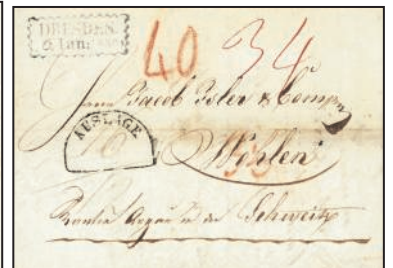 DRESDEN.
6 Jan
40 34
Jacob Isler & Comp
AUSLAGE
Wohlen
Kanton Argau in der Schweitz